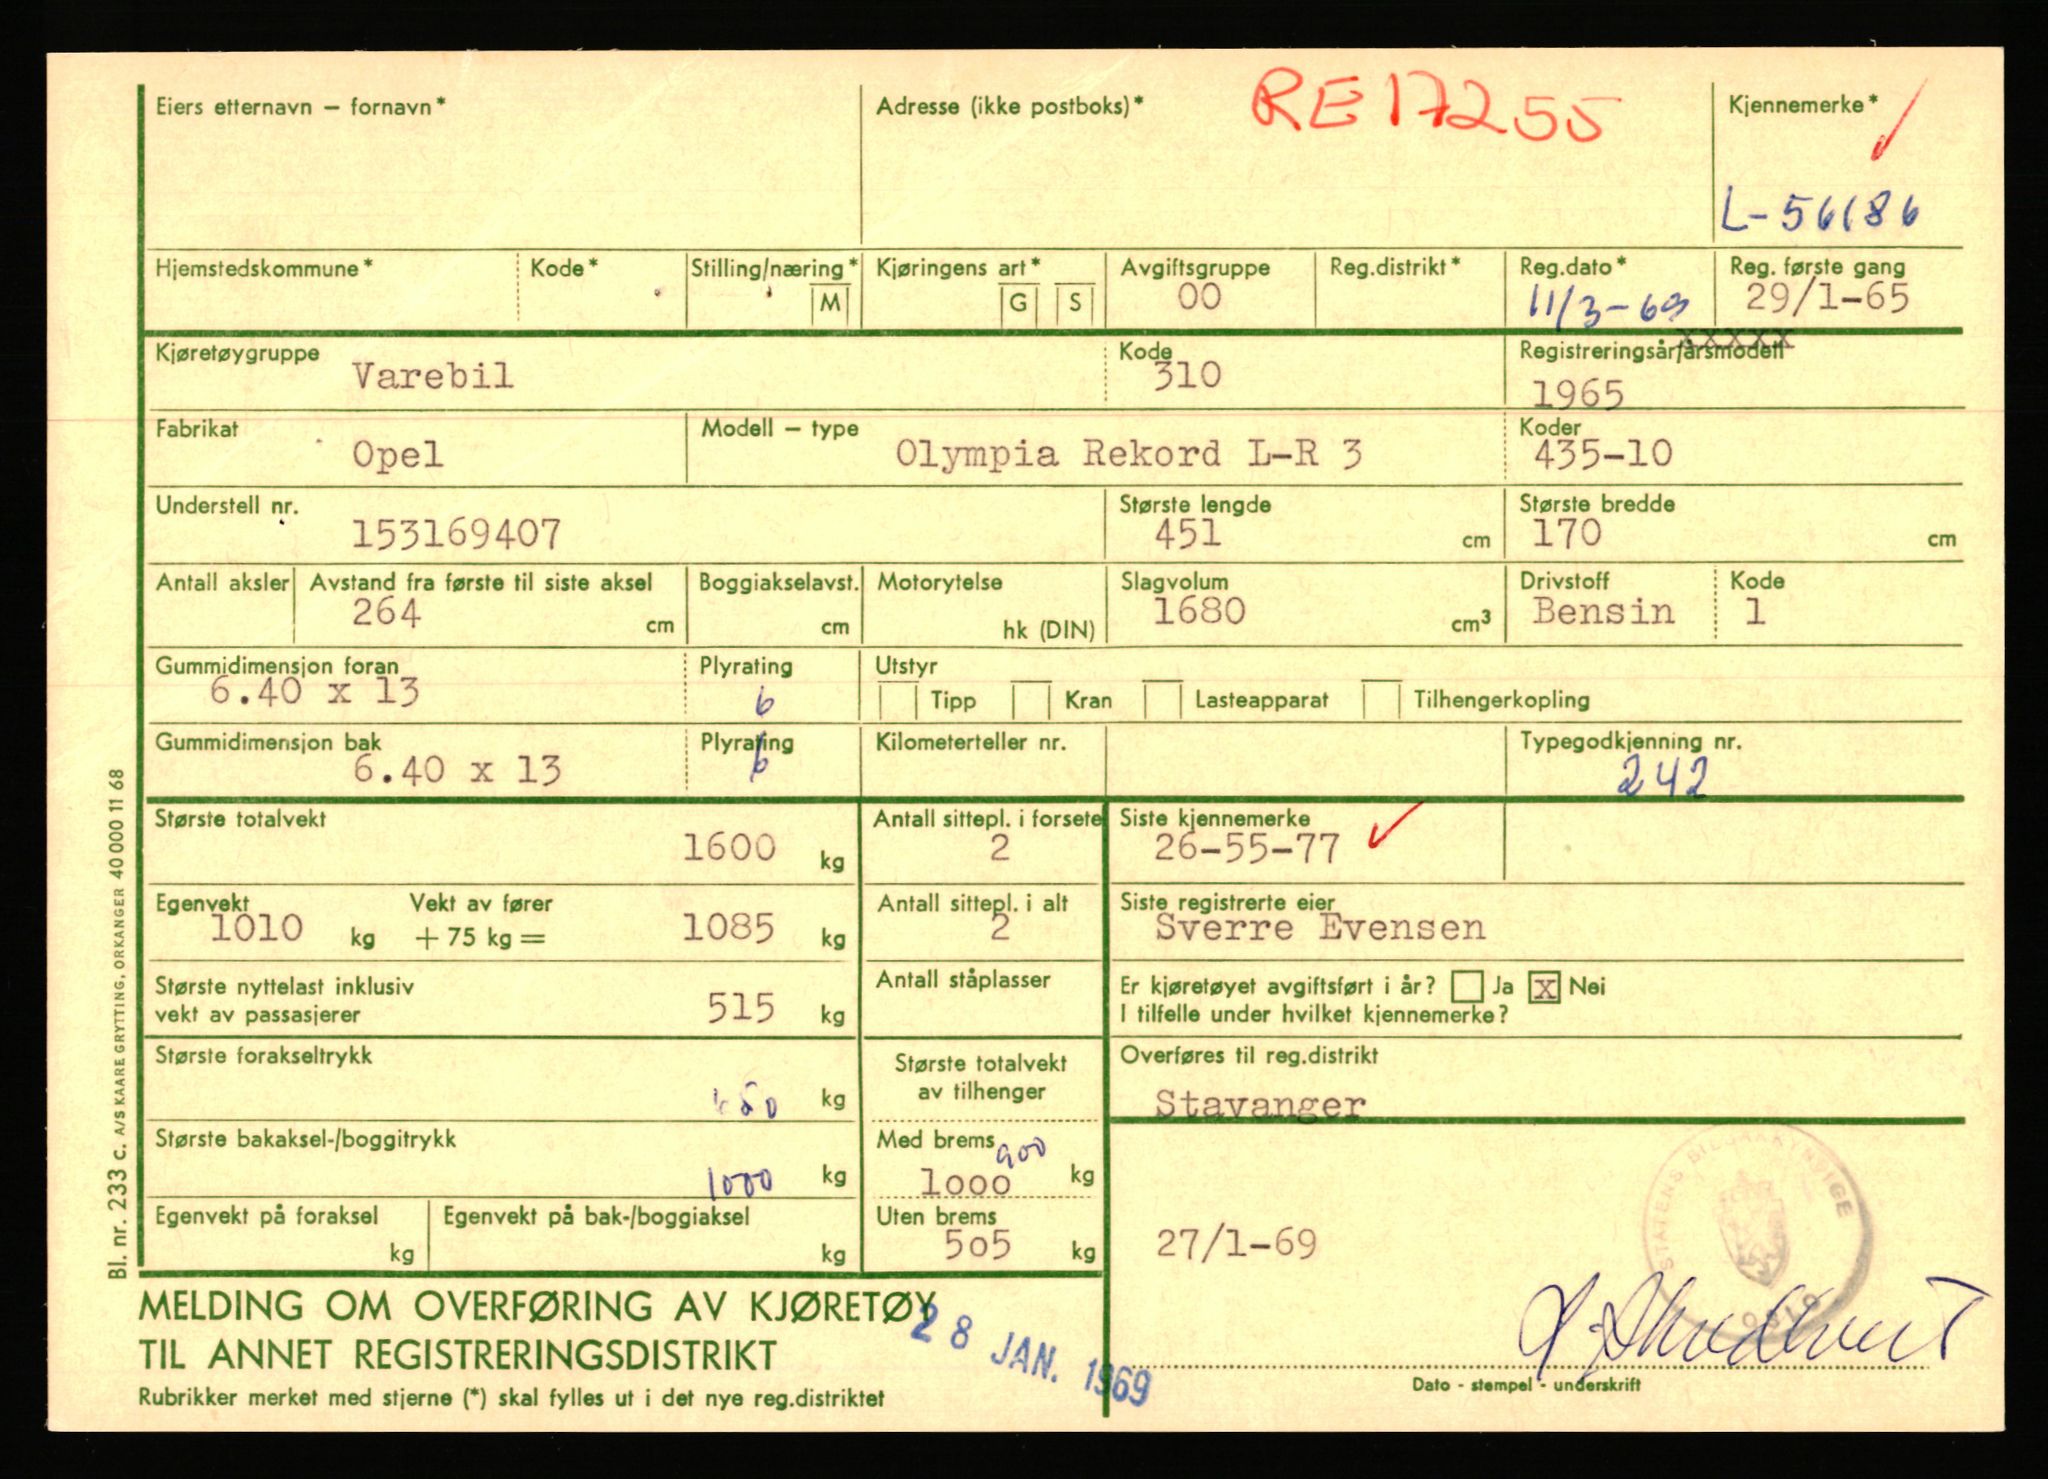 Eiers etternavn – fornavn*
Adresse (ikke postboks)*
RE17255
Kjennemerke*
L-56186
Hjemstedskommune*
Kode*
Stilling/næring*
M
Kjøringens art*
G S
Avgiftsgruppe
00
Reg.distrikt*
Reg.dato*
11/3-69
Reg. første gang
29/1-65
Kjøretøygruppe
Varebil
Kode
310
Registreringsår/årsmodell
xxxxx
1965
Fabrikat
Opel
Modell – type
Olympia Rekord L-R 3
Koder
435-10
Understell nr.
153169407
Største lengde
451 cm
Største bredde
170 cm
Antall aksler
Avstand fra første til siste aksel
264 cm
Boggiakselavst.
cm
Motorytelse
hk (DIN)
Slagvolum
1680 cm³
Drivstoff
Bensin
Kode
1
Gummidimensjon foran
6.40 x 13
Plyrating
6
Utstyr
Tipp Kran Lasteapparat Tilhengerkopling
Gummidimensjon bak
6.40 x 13
Plyrating
6
Kilometerteller nr.
Typegodkjenning nr.
242
Største totalvekt
1600 kg
Antall sittepl. i forsete
2
Siste kjennemerke
26-55-77
Egenvekt
1010 kg
Vekt av fører
+ 75 kg =
1085 kg
Antall sittepl. i alt
2
Siste registrerte eier
Sverre Evensen
Største nyttelast inklusiv
vekt av passasjerer
515 kg
Antall ståplasser
Er kjøretøyet avgiftsført i år? Ja x Nei
I tilfelle under hvilket kjennemerke?
Største forakseltrykk
kg
Største totalvekt
av tilhenger
Overføres til reg.distrikt
Stavanger
Største bakaksel-/boggitrykk
1000 kg
Med brems
900
1000 kg
Egenvekt på foraksel
kg
Egenvekt på bak-/boggiaksel
kg
Uten brems
505 kg
27/1-69
STATENS BILSAKKYNDIGE
OSLO
MELDING OM OVERFØRING AV KJØRETØY
TIL ANNET REGISTRERINGSDISTRIKT
28 JAN. 1969
Rubrikker merket med stjerne (*) skal fylles ut i det nye reg.distriktet
Dato - stempel - underskrift
Bl. nr. 233 c. A/S KAARE GRYTTING, ORKANGER 40 000 11 68